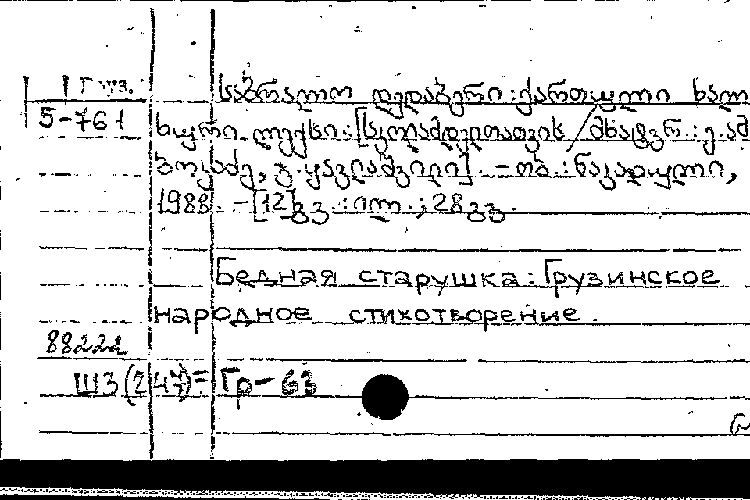 Груз.
5-761
საბრალო დედაბერი : ქართული ხალ
ხური ლექსი : [სკოლამდელთათვის / მხატვრ.: ე. ამ
ბოკაძე, გ. ყავლაშვილი]. - თბ. : ნაკადული,
1988. - [12] გვ. : ილ. ; 28 გვ.
Бедная старушка : Грузинское
народное стихотворение.
88222
Ш3(2Г)= Гр-63